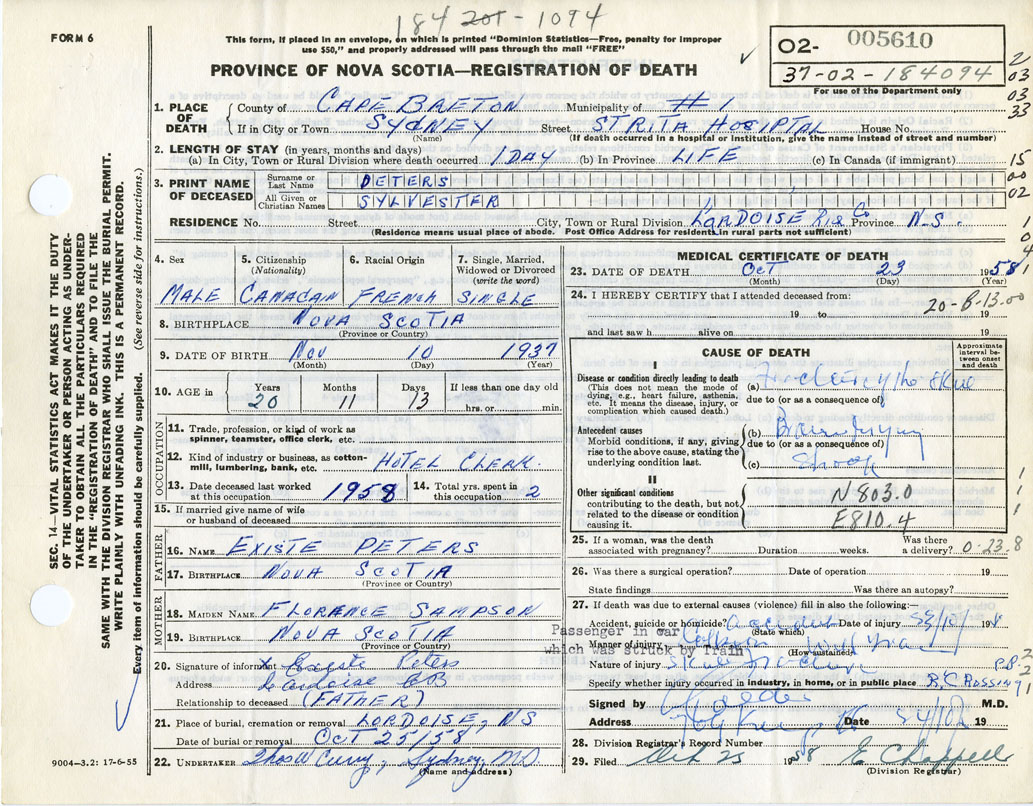 184 201-1094
FORM 6
This form, if placed in an envelope, on which is printed "Dominion Statistics—Free, penalty for improper
use $50," and properly addressed will pass through the mail "FREE"
02- 005610
37-02-184094
For use of the Department only
PROVINCE OF NOVA SCOTIA—REGISTRATION OF DEATH
2
03
03
33
15
00
02
1. PLACE OF DEATH { County of CAPE BRETON Municipality of #1
If in City or Town SYDNEY Street ST RITA HOSIPTAL House No.
(Name) (If death occurred in a hospital or institution, give the name instead of street and number)
2. LENGTH OF STAY (in years, months and days)
(a) In City, Town or Rural Division where death occurred 1 DAY (b) In Province LIFE (c) In Canada (if immigrant)
3. PRINT NAME OF DECEASED { Surname or Last Name PETERS
All Given or Christian Names SYLVESTER
RESIDENCE No. Street City, Town or Rural Division L'ARDOISE Ric Co Province N.S.
(Residence means usual place of abode. Post Office Address for residents in rural parts not sufficient)
4. Sex MALE
5. Citizenship (Nationality) CANADAIN
6. Racial Origin FRENCH
7. Single, Married, Widowed or Divorced (write the word) SINGLE
8. BIRTHPLACE NOVA SCOTIA
(Province or Country)
9. DATE OF BIRTH NOV 10 1937
(Month) (Day) (Year)
10. AGE in { Years 20 Months 11 Days 13 If less than one day old
hrs. or min.
OCCUPATION
11. Trade, profession, or kind of work as spinner, teamster, office clerk, etc.
12. Kind of industry or business, as cotton-mill, lumbering, bank, etc. HOTEL CLERK.
13. Date deceased last worked at this occupation 1958
14. Total yrs. spent in this occupation 2
15. If married give name of wife or husband of deceased
FATHER
16. NAME EXISTE PETERS
17. BIRTHPLACE NOVA SCOTIA
(Province or Country)
MOTHER
18. MAIDEN NAME FLORENCE SAMPSON
19. BIRTHPLACE NOVA SCOTIA
(Province or Country)
20. Signature of informant X Existe Peters
Address Lardoise CB
Relationship to deceased (FATHER)
21. Place of burial, cremation or removal LORDOISE, NS
Date of burial or removal OCT 25/58
22. UNDERTAKER Thos W Curry, Sydney,
(Name and address)
MEDICAL CERTIFICATE OF DEATH
23. DATE OF DEATH Oct 23 1958
(Month) (Day) (Year)
24. I HEREBY CERTIFY that I attended deceased from:
19 to 19
20-B-13.00
and last saw h alive on 19
CAUSE OF DEATH
Approximate interval between onset and death
I
Disease or condition directly leading to death
(This does not mean the mode of dying, e.g., heart failure, asthenia, etc. It means the disease, injury, or complication which caused death.)
(a)
due to (or as a consequence of)
Antecedent causes
Morbid conditions, if any, giving rise to the above cause, stating the underlying condition last.
(b)
due to (or as a consequence of)
(c) Shock
II
Other significant conditions
contributing to the death, but not related to the disease or condition causing it.
N803.0
E810.4
25. If a woman, was the death associated with pregnancy? Duration weeks. Was there a delivery? 0.23.8
26. Was there a surgical operation? Date of operation 19
State findings Was there an autopsy?
27. If death was due to external causes (violence) fill in also the following:
Accident, suicide or homicide? accident Date of injury
(State which)
Passenger in car
Manner of injury
which was struck by Train
(How sustained)
Nature of injury
Specify whether injury occurred in industry, in home, or in public place R.CROSSING
Signed by M.D.
Address Date 19
28. Division Registrar's Record Number
29. Filed Oct 25 1958 E Chappell
(Division Registrar)
SEC. 14—VITAL STATISTICS ACT MAKES IT THE DUTY
OF THE UNDERTAKER OR PERSON ACTING AS UNDER-
TAKER TO OBTAIN ALL THE PARTICULARS REQUIRED
IN THE "REGISTRATION OF DEATH" AND TO FILE THE
SAME WITH THE DIVISION REGISTRAR WHO SHALL ISSUE THE BURIAL PERMIT.
WRITE PLAINLY WITH UNFADING INK. THIS IS A PERMANENT RECORD.
Every item of information should be carefully supplied. (See reverse side for instructions.)
9004—3.2: 17-6-55